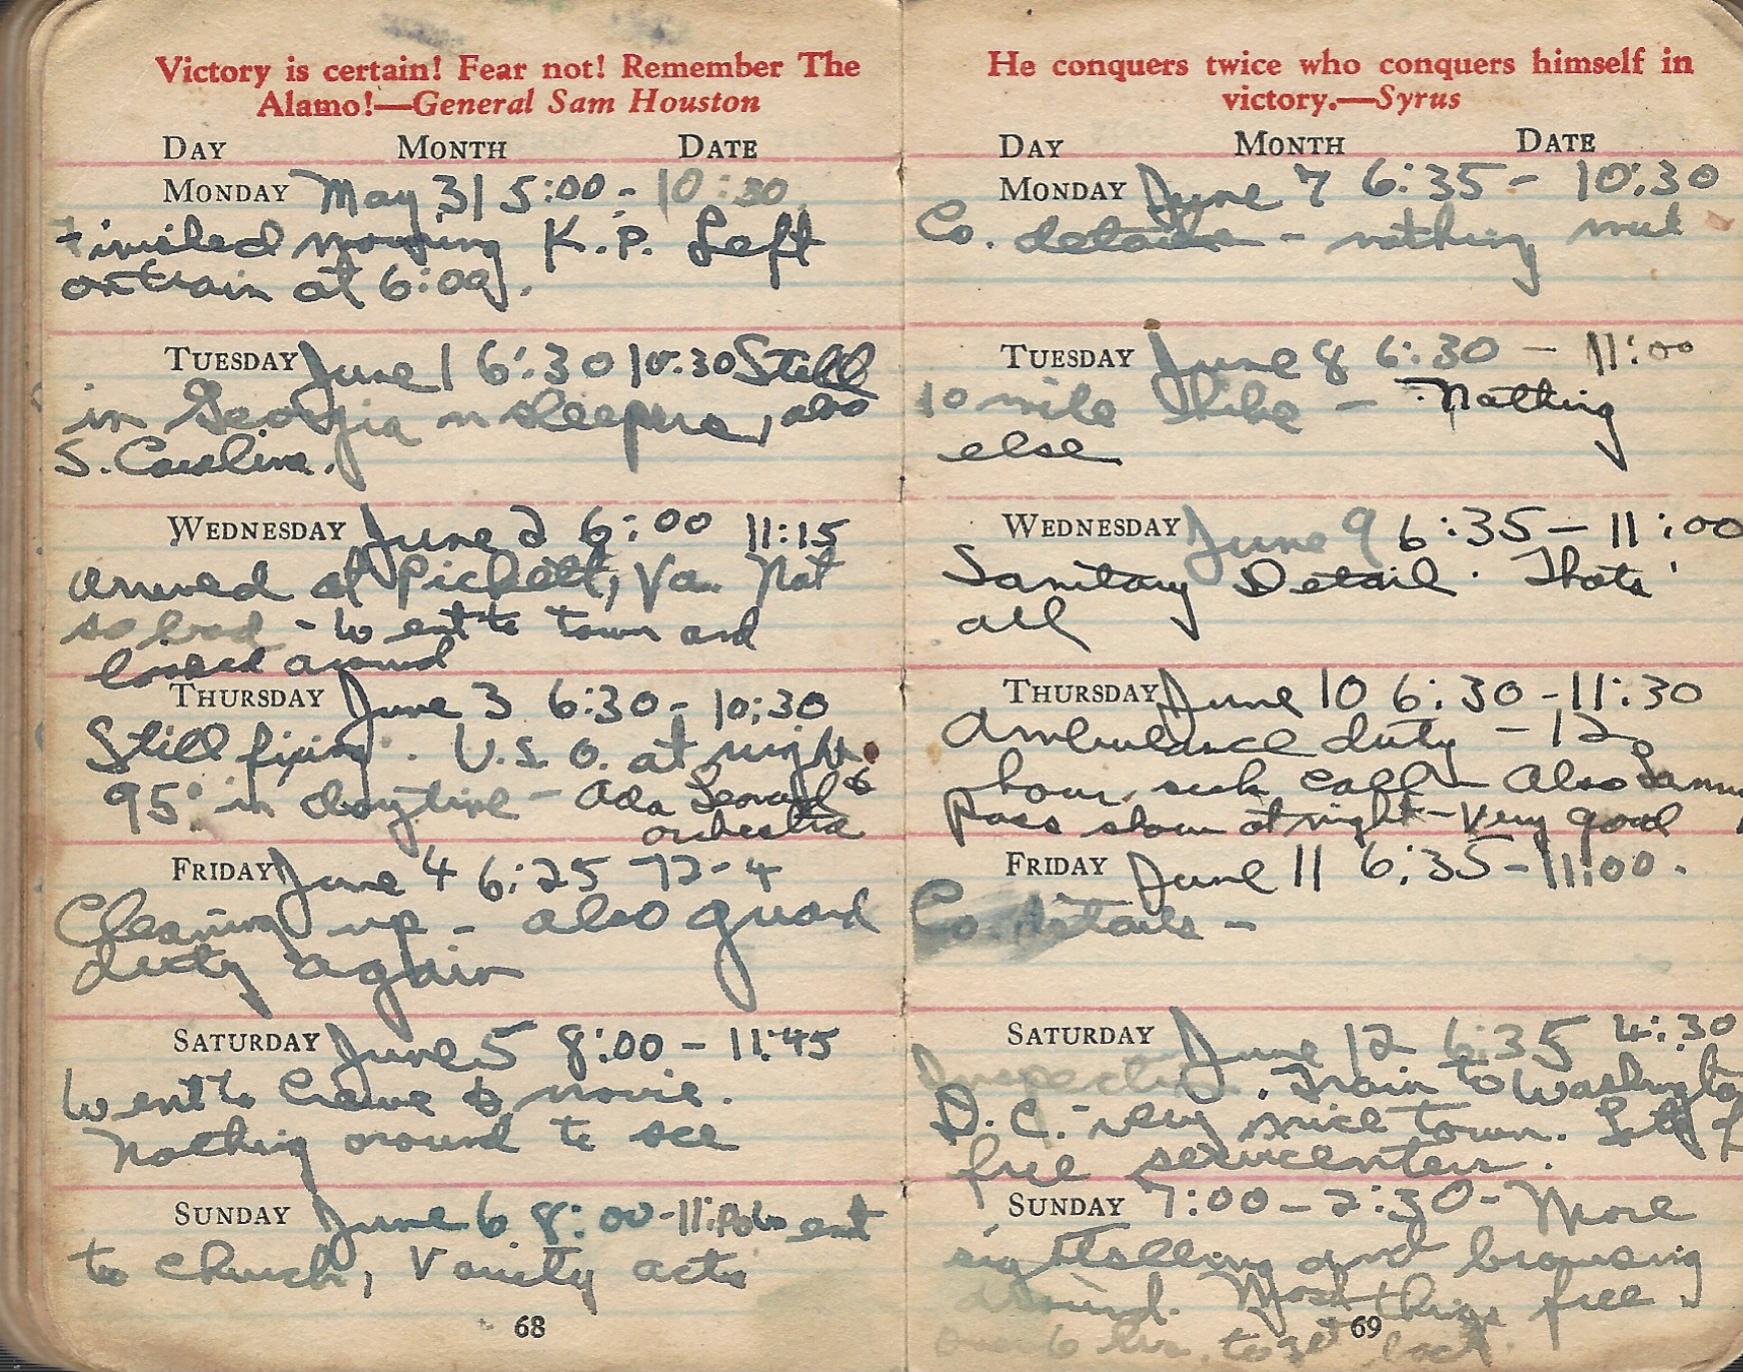 Victory is certain! Fear not! Remember The
Alamo!—General Sam Houston
DAY MONTH DATE
MONDAY May 31 5:00 - 10:30
Finished morning K.P. Left
on train at 6:00.
TUESDAY June 1 6:30 10:30 Still
in Georgia in sleepers, also
S. Carolina.
WEDNESDAY June 2 6:00 11:15
arrived at Pickett, Va. Not
so bad - Went to town and
looked around
THURSDAY June 3 6:30 - 10:30
Still fixing. U.S.O. at night.
95° in daytime - Ada Leonard's
orchestra
FRIDAY June 4 6:25 12-4
Cleaning up - also guard
duty again
SATURDAY June 5 8:00 - 11:45
Went to Crewe & movie.
Nothing around to see
SUNDAY June 6 8:00 - 11:00 Went
to church, Vanity acts
68
He conquers twice who conquers himself in
victory.—Syrus
DAY MONTH DATE
MONDAY June 7 6:35 - 10:30
Co. details - nothing much
TUESDAY June 8 6:30 - 11:00
10 mile hike - Nothing
else
WEDNESDAY June 9 6:35 - 11:00
Sanitary Detail. Thats
all
THURSDAY June 10 6:30 - 11:30
Ambulance duty - 12
hour, sick call - Also
Pass show at night - Very good
FRIDAY June 11 6:35 - 11:00.
Co. details -
SATURDAY June 12 6:35 4:30
Inspection. Train to Washington
D.C. - very nice town. Lots of
free servicenters.
SUNDAY 7:00 - 2:30 - More
sightseeing and browsing
around. Most things free.
over 6 hrs. to get back.
69